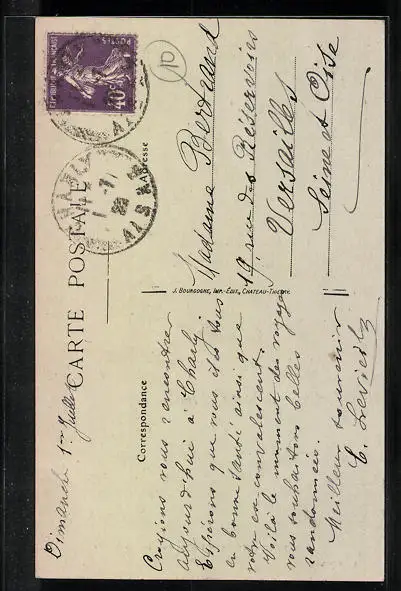 Dimanche 1er Juillet
CARTE POSTALE
Correspondance
Adresse
Croyions vous rencontrer
aujourd'hui à Charly
Espérons que vous êtes tous
en bonne santé ainsi que
votre convalescent.
Voilà le moment des voyages
vous souhaitons belles
randonnées.
Meilleur souvenir
Madame Bertrand
19, rue des Réservoirs
Versailles
Seine et Oise
J. BOURGOGNE, IMP.-ÉDIT., CHATEAU-THIERRY
REPUBLIQUE FRANÇAISE
POSTES
40c
AISNE
10